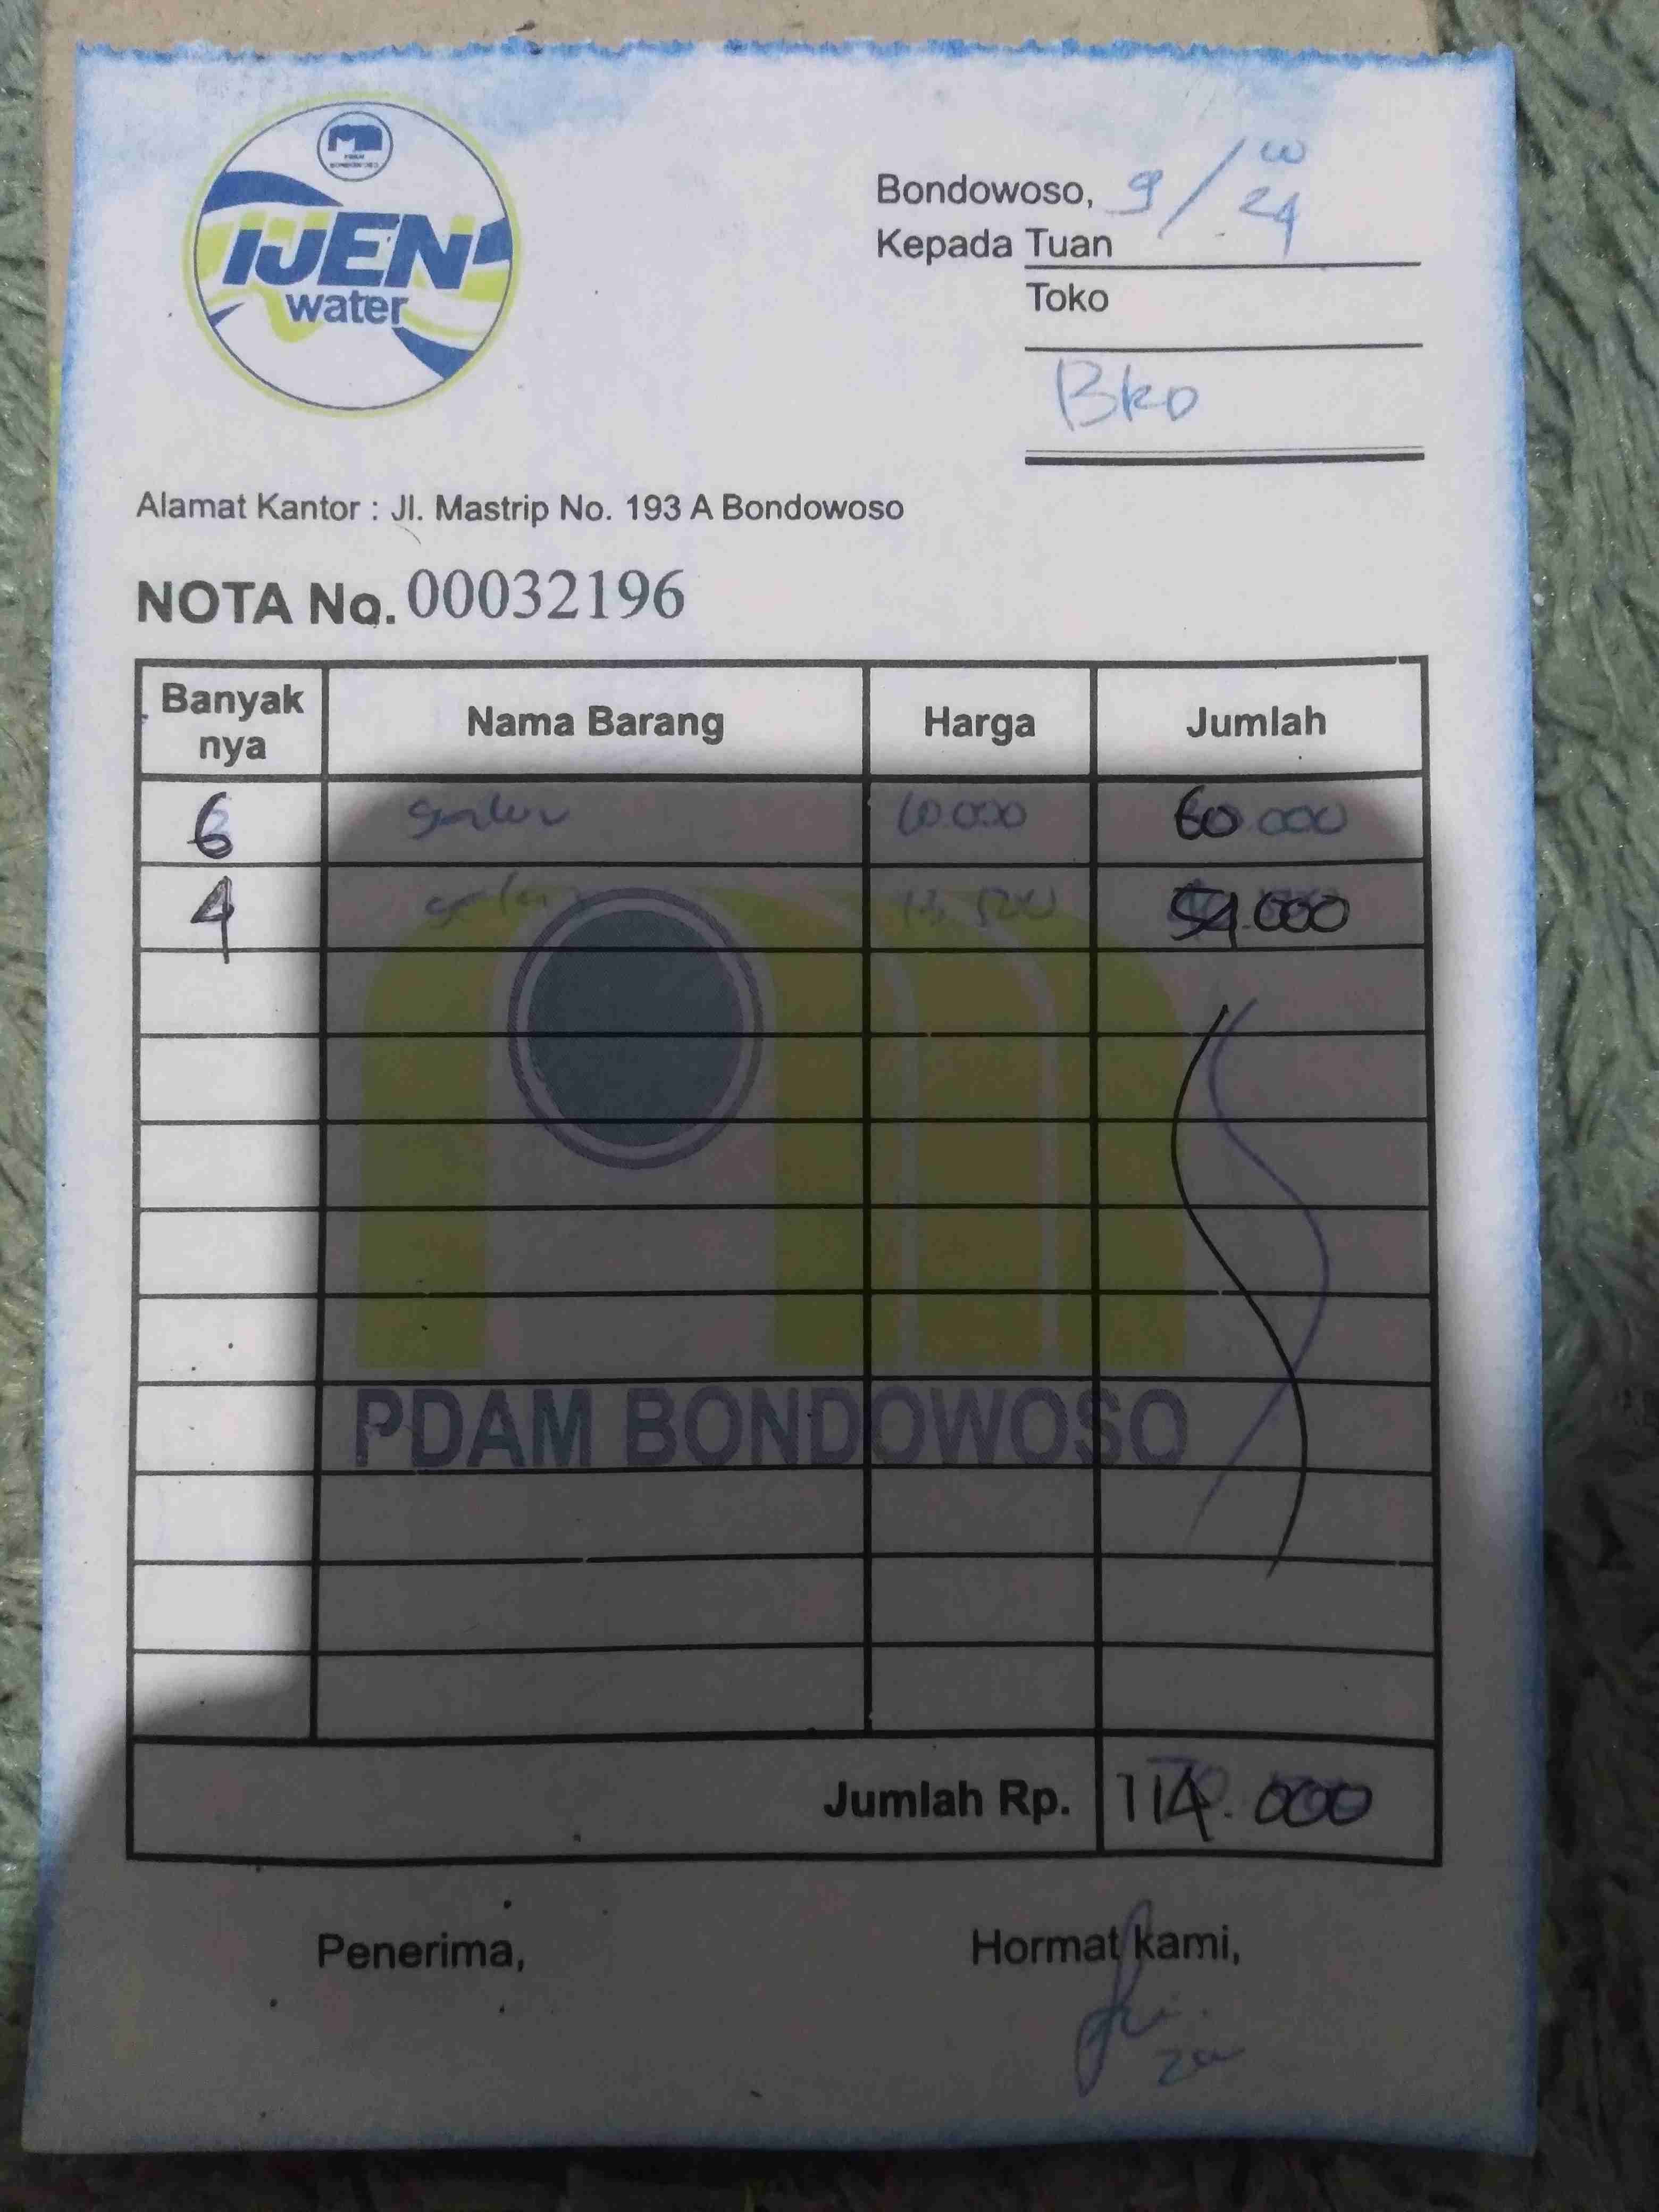 PDAM
BONDOWOSO
IJEN
water
Bondowoso, 9 / 24
Kepada Tuan
Toko
Bko
Alamat Kantor : Jl. Mastrip No. 193 A Bondowoso
NOTA No. 00032196
Banyak nya Nama Barang Harga Jumlah
6 galon 10.000 60.000
4 galon 13.500 54.000
PDAM BONDOWOSO
Jumlah Rp. 114.000
Penerima, Hormat kami,